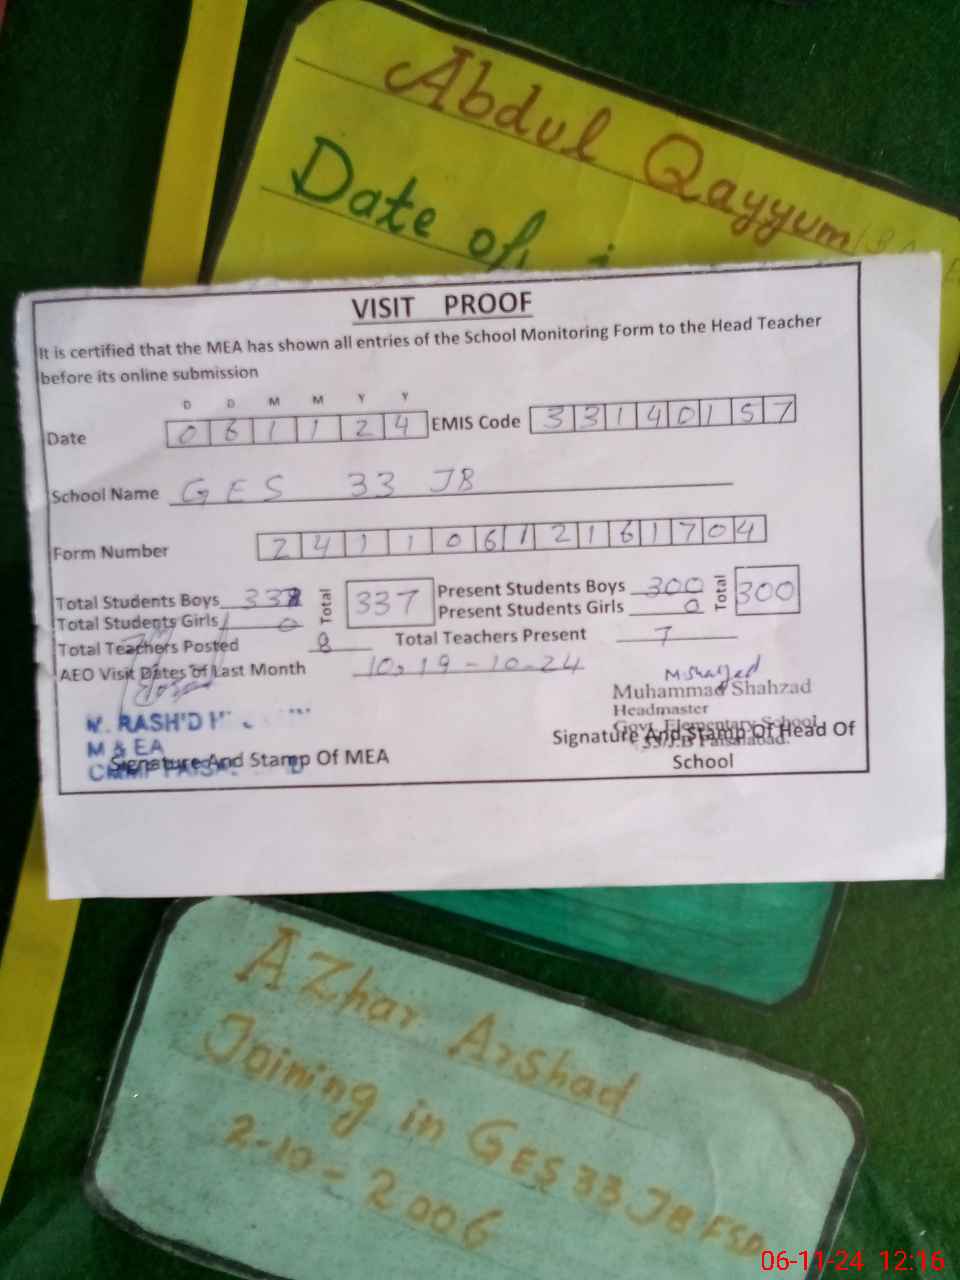 Abdul Qayyum
Date of
VISIT PROOF
It is certified that the MEA has shown all entries of the School Monitoring Form to the Head Teacher
before its online submission
D D M M Y Y
Date 0 6 1 1 2 4 EMIS Code 3 3 1 4 0 1 5 7
School Name GES 33 JB
Form Number 2 4 1 1 0 6 1 2 1 6 1 7 0 4
Total Students Boys 337 Total 337 Present Students Boys 300 Total 300
Total Students Girls 0 Present Students Girls 0
Total Teachers Posted 8 Total Teachers Present 7
AEO Visit Dates of Last Month 10, 19-10-24
M Shahzad
Muhammad Shahzad
Headmaster
Govt. Elementary School
33/J.B Faisalabad.
Signature And Stamp Of Head Of
School
M. RASHID
M & EA
Signature And Stamp Of MEA
AZhar Arshad
Joining in GES 33 JB FSD
2-10-2006
06-11-24 12:16